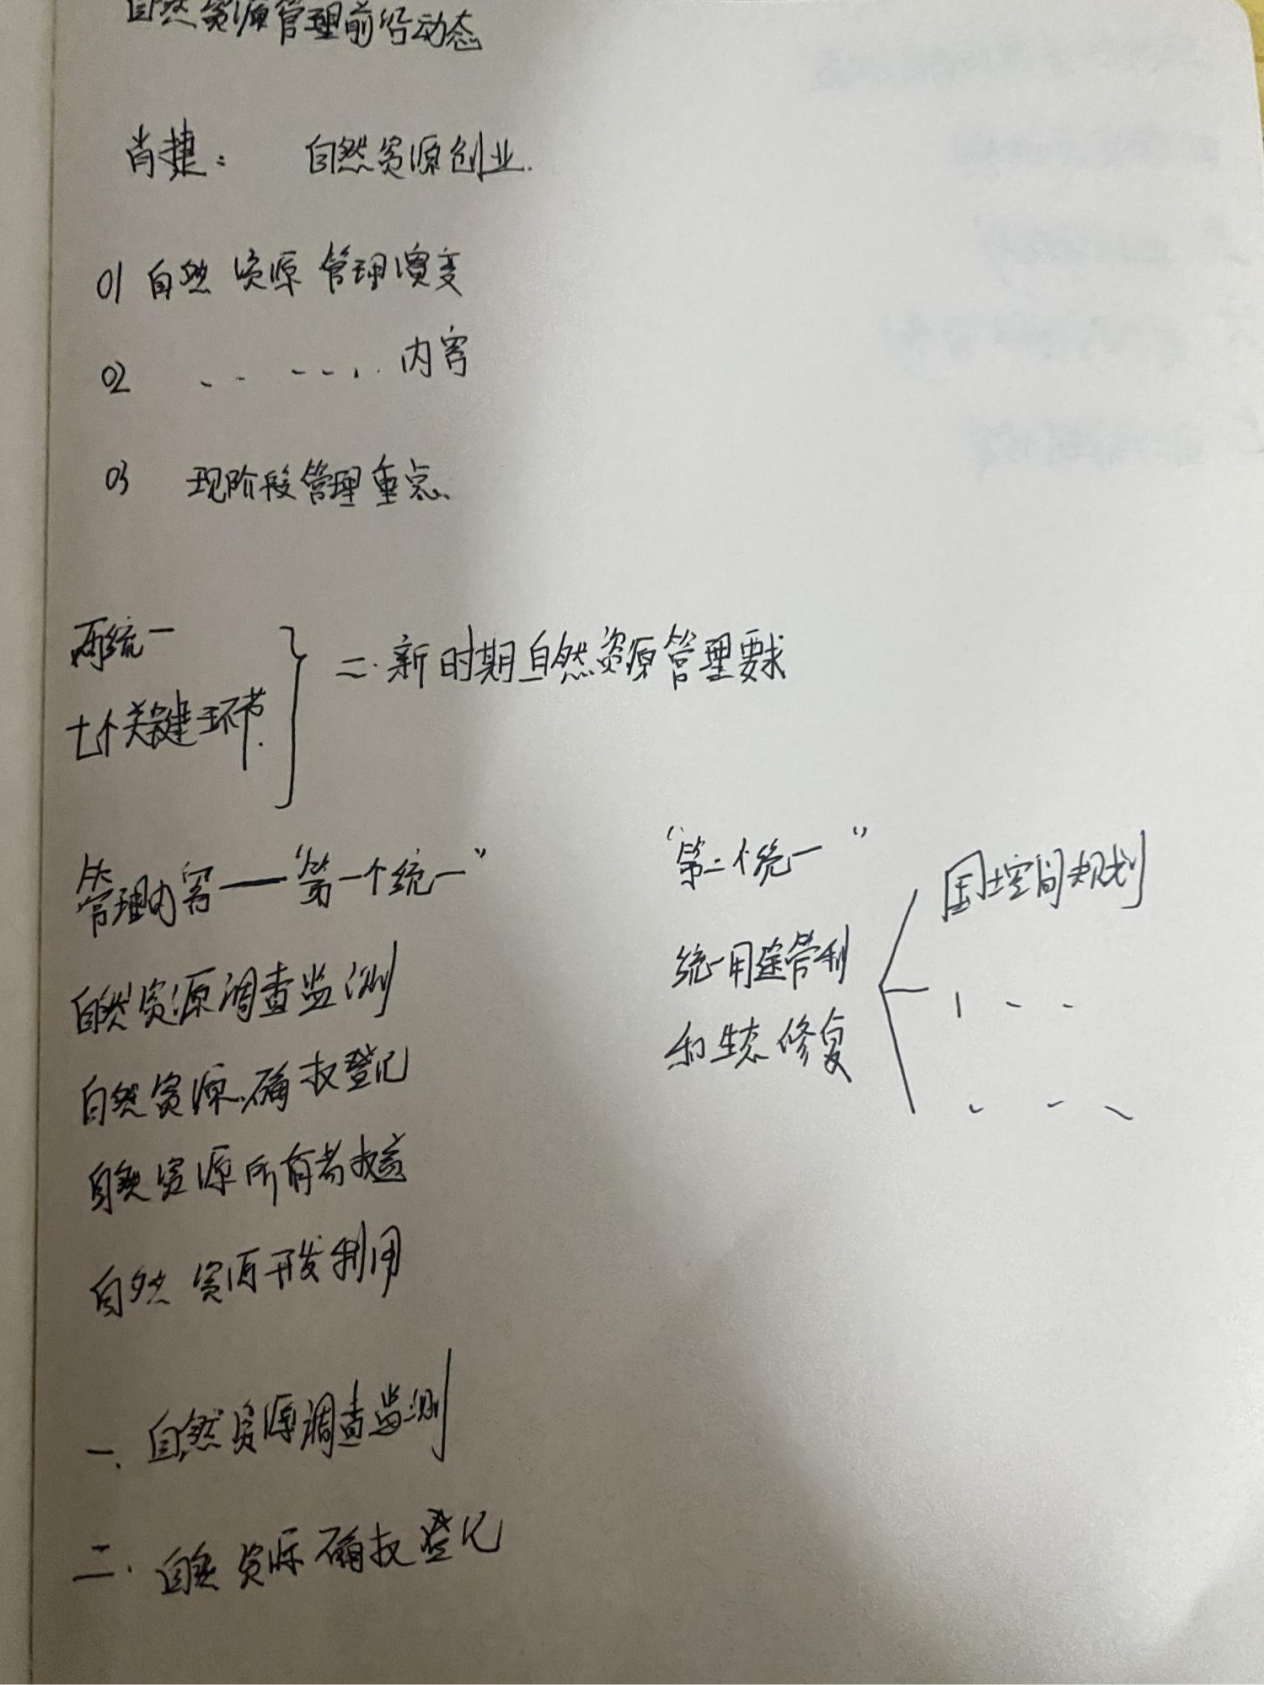 自然资源管理前沿动态
肖捷： 自然资源创业.
01 自然资源管理演变
02 - - - - . . 内容
03 现阶段管理重点、
两统一
七个关键环节.
二.新时期自然资源管理要求
管理内容——“第一个统一”
自然资源调查监测
自然资源确权登记
自然资源所有者权益
自然资源开发利用
“第二个统一”
统一用途管制
和生态修复
国土空间规划
一、自然资源调查监测
二.自然资源确权登记